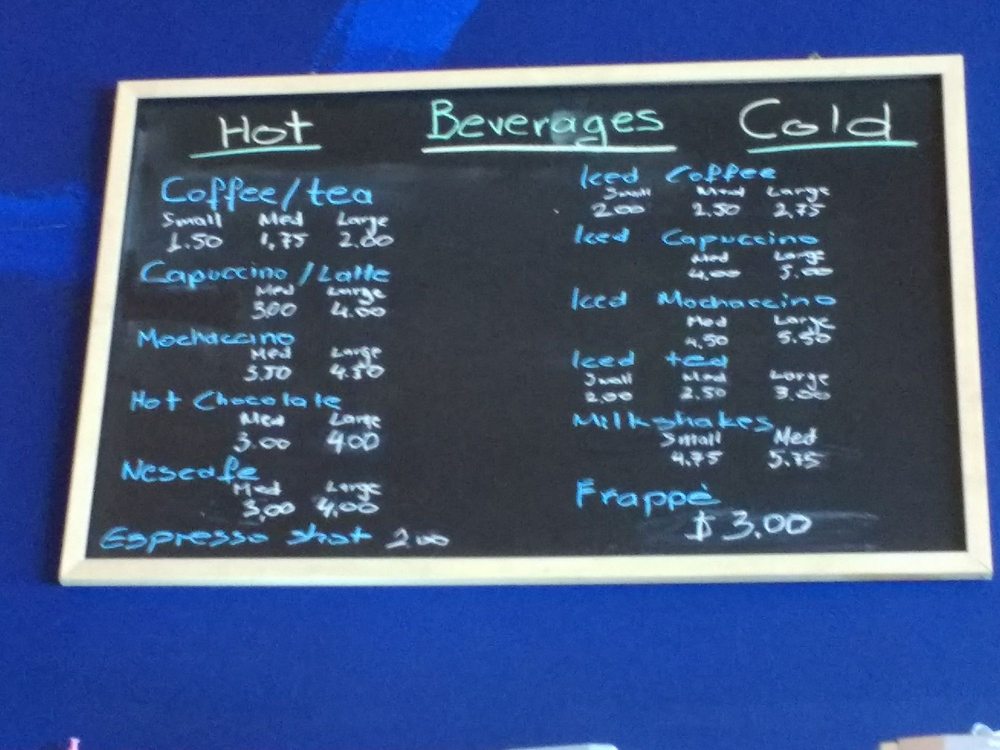 Hot Beverages Cold
Coffee/tea
Small Med Large
1.50 1.75 2.00
Capuccino/Latte
Med Large
3.00 4.00
Mochaccino
Med Large
3.50 4.50
Hot Chocolate
Med Large
3.00 4.00
Nescafe
Med Large
3.00 4.00
Espresso shot 2.00
Iced Coffee
Small Med Large
2.00 2.50 2.75
Iced Capuccino
Med Large
4.00 5.00
Iced Mochaccino
Med Large
4.50 5.50
Iced tea
Small Med Large
2.00 2.50 3.00
Milkshakes
Small Med
4.75 5.75
Frappè
$ 3.00